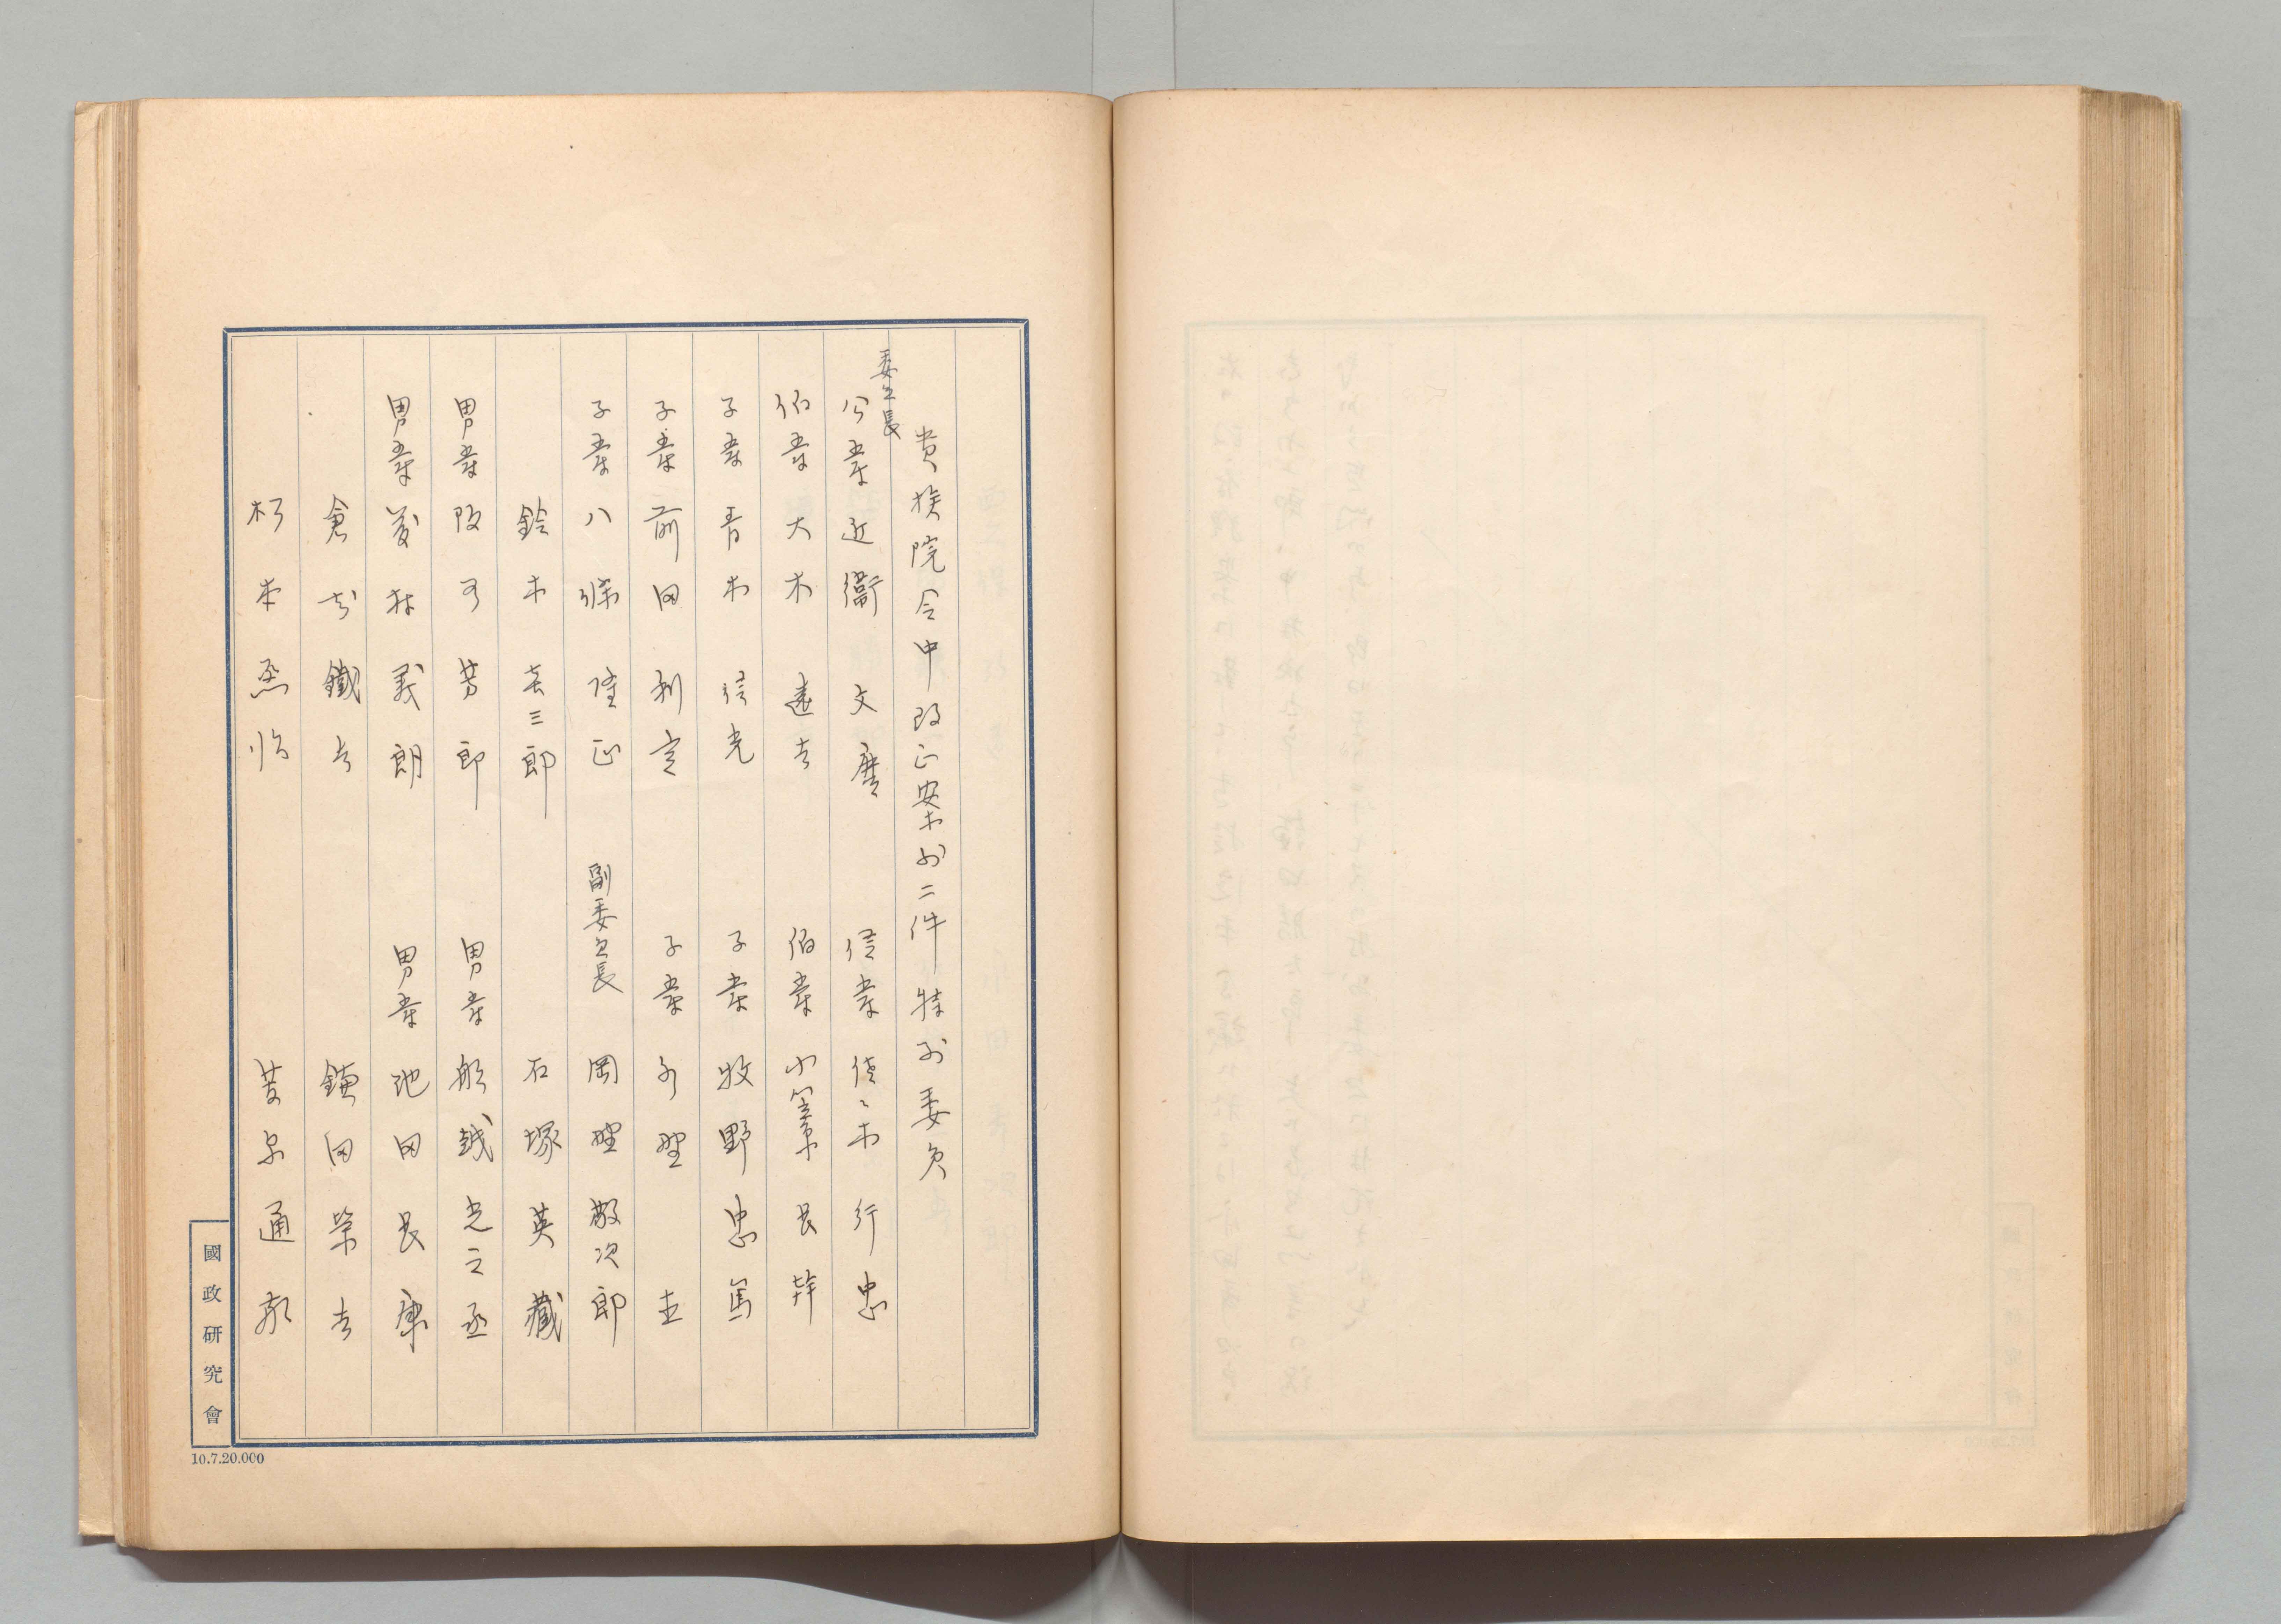 貴族院令中改正案外二件特別委員
委員長
公爵 近衞文麿
侯爵 佐々木行忠
伯爵 大木遠吉
伯爵 小笠原長幹
子爵 青木信光
子爵 牧野忠篤
子爵 前田利定
子爵 水野直
子爵 八條隆正
副委員長
岡野敬次郎
鈴木喜三郎
石塚英藏
男爵 阪谷芳郎
男爵 船越光之丞
男爵 藤村義朗
男爵 池田長康
倉知鐵吉
鎌田榮吉
菅原通敬
國政研究會
10.7.20.000